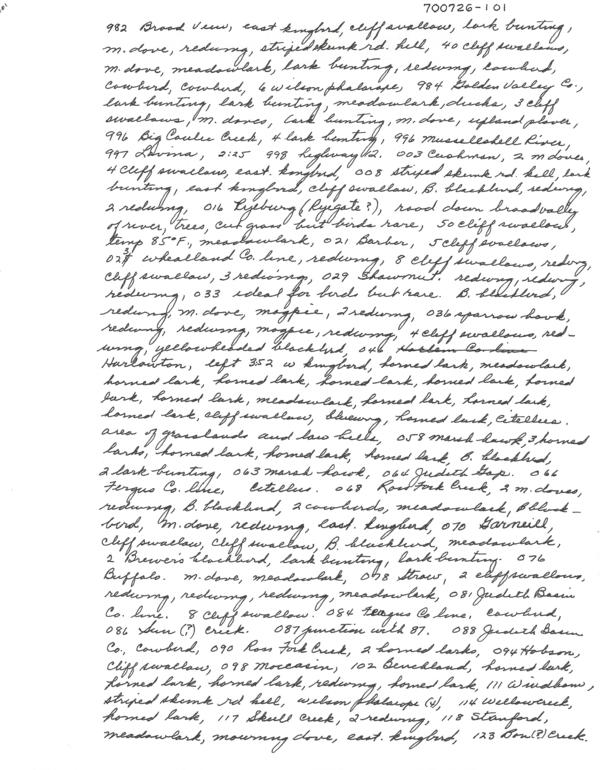 700726-101
982 Broad View, east kingbird, cliff swallow, lark bunting,
m. dove, redwing, striped skunk rd. kill, 40 cliff swallows,
m. dove, meadowlark, lark bunting, redwing, cowbird,
cowbird, cowbird, 6 wilson phalarope, 984 Golden Valley Co.,
lark bunting, lark bunting, meadowlark, ducks, 3 cliff
swallows, m. doves, lark bunting, m. dove, upland plover,
996 Big Coulee Creek, 4 lark bunting, 996 Musselshell River,
997 Lavina, 2:25 998 highway 12. 003 Cushman, 2 m doves,
4 cliff swallow, east. kingbird, 008 striped skunk rd. kill, lark
bunting, east kingbird, cliff swallow, B. blackbird, redwing,
2 redwing, 016 Ryeburg (Ryegate?), road down broad valley
of river, trees, cut grass but birds rare, 50 cliff swallow,
temp 85°F, meadowlark, 021 Barber, 5 cliff swallows,
023 wheatland Co. line, redwing, 8 cliff swallows, redwing,
cliff swallow, 3 redwing, 029 Shawmut. redwing, redwing,
redwing, 033 ideal for birds but rare. B. blackbird,
redwing, m. dove, magpie, 2 redwing, 036 sparrow hawk,
redwing, redwing, magpie, redwing, 4 cliff swallows, red-
wing, yellowheaded blackbird, 046
Harlowton, left 352 w kingbird, horned lark, meadowlark,
horned lark, horned lark, horned lark, horned lark, horned
lark, horned lark, meadowlark, horned lark, horned lark,
horned lark, cliff swallow, bluewing, horned lark, Citellus.
area of grasslands and low hills, 058 marsh hawk, 3 horned
larks, horned lark, horned lark, horned lark, B. blackbird,
2 lark bunting, 063 marsh hawk, 064 Judith Gap. 066
Fergus Co. line, Citellus. 068 Ross Fork Creek, 2 m. doves,
redwing, B. blackbird, 2 cowbirds, meadowlark, B black-
bird, m. dove, redwing, east. kingbird, 070 Garneill,
cliff swallow, cliff swallow, B. blackbird, meadowlark,
2 Brewer's blackbird, lark bunting, lark bunting. 076
Buffalo. m. dove, meadowlark, 078 Straw, 2 cliff swallows,
redwing, redwing, redwing, meadowlark, 081 Judith Basin
Co. line. 8 cliff swallow. 084 Fergus Co line, cowbird,
086 Sun (?) Creek. 087 junction with 87. 088 Judith Basin
Co., cowbird, 090 Ross Fork Creek, 2 horned larks, 094 Hobson,
cliff swallow, 098 Moccasin, 102 Benchland, horned lark,
horned lark, horned lark, redwing, horned lark, 111 Windham,
striped skunk rd kill, wilson phalarope (4), 114 Willow Creek,
horned lark, 117 Skull Creek, 2 redwing, 118 Stanford,
meadowlark, mourning dove, east. kingbird, 123 Bon (?) Creek.